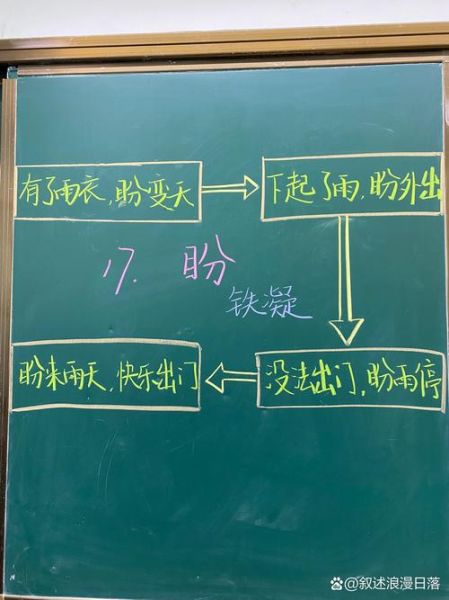 有了雨衣,盼变天
下起了雨,盼外出
17. 盼
铁凝
盼来雨天,快乐出门
没法出门,盼雨停
@叙述浪漫日落